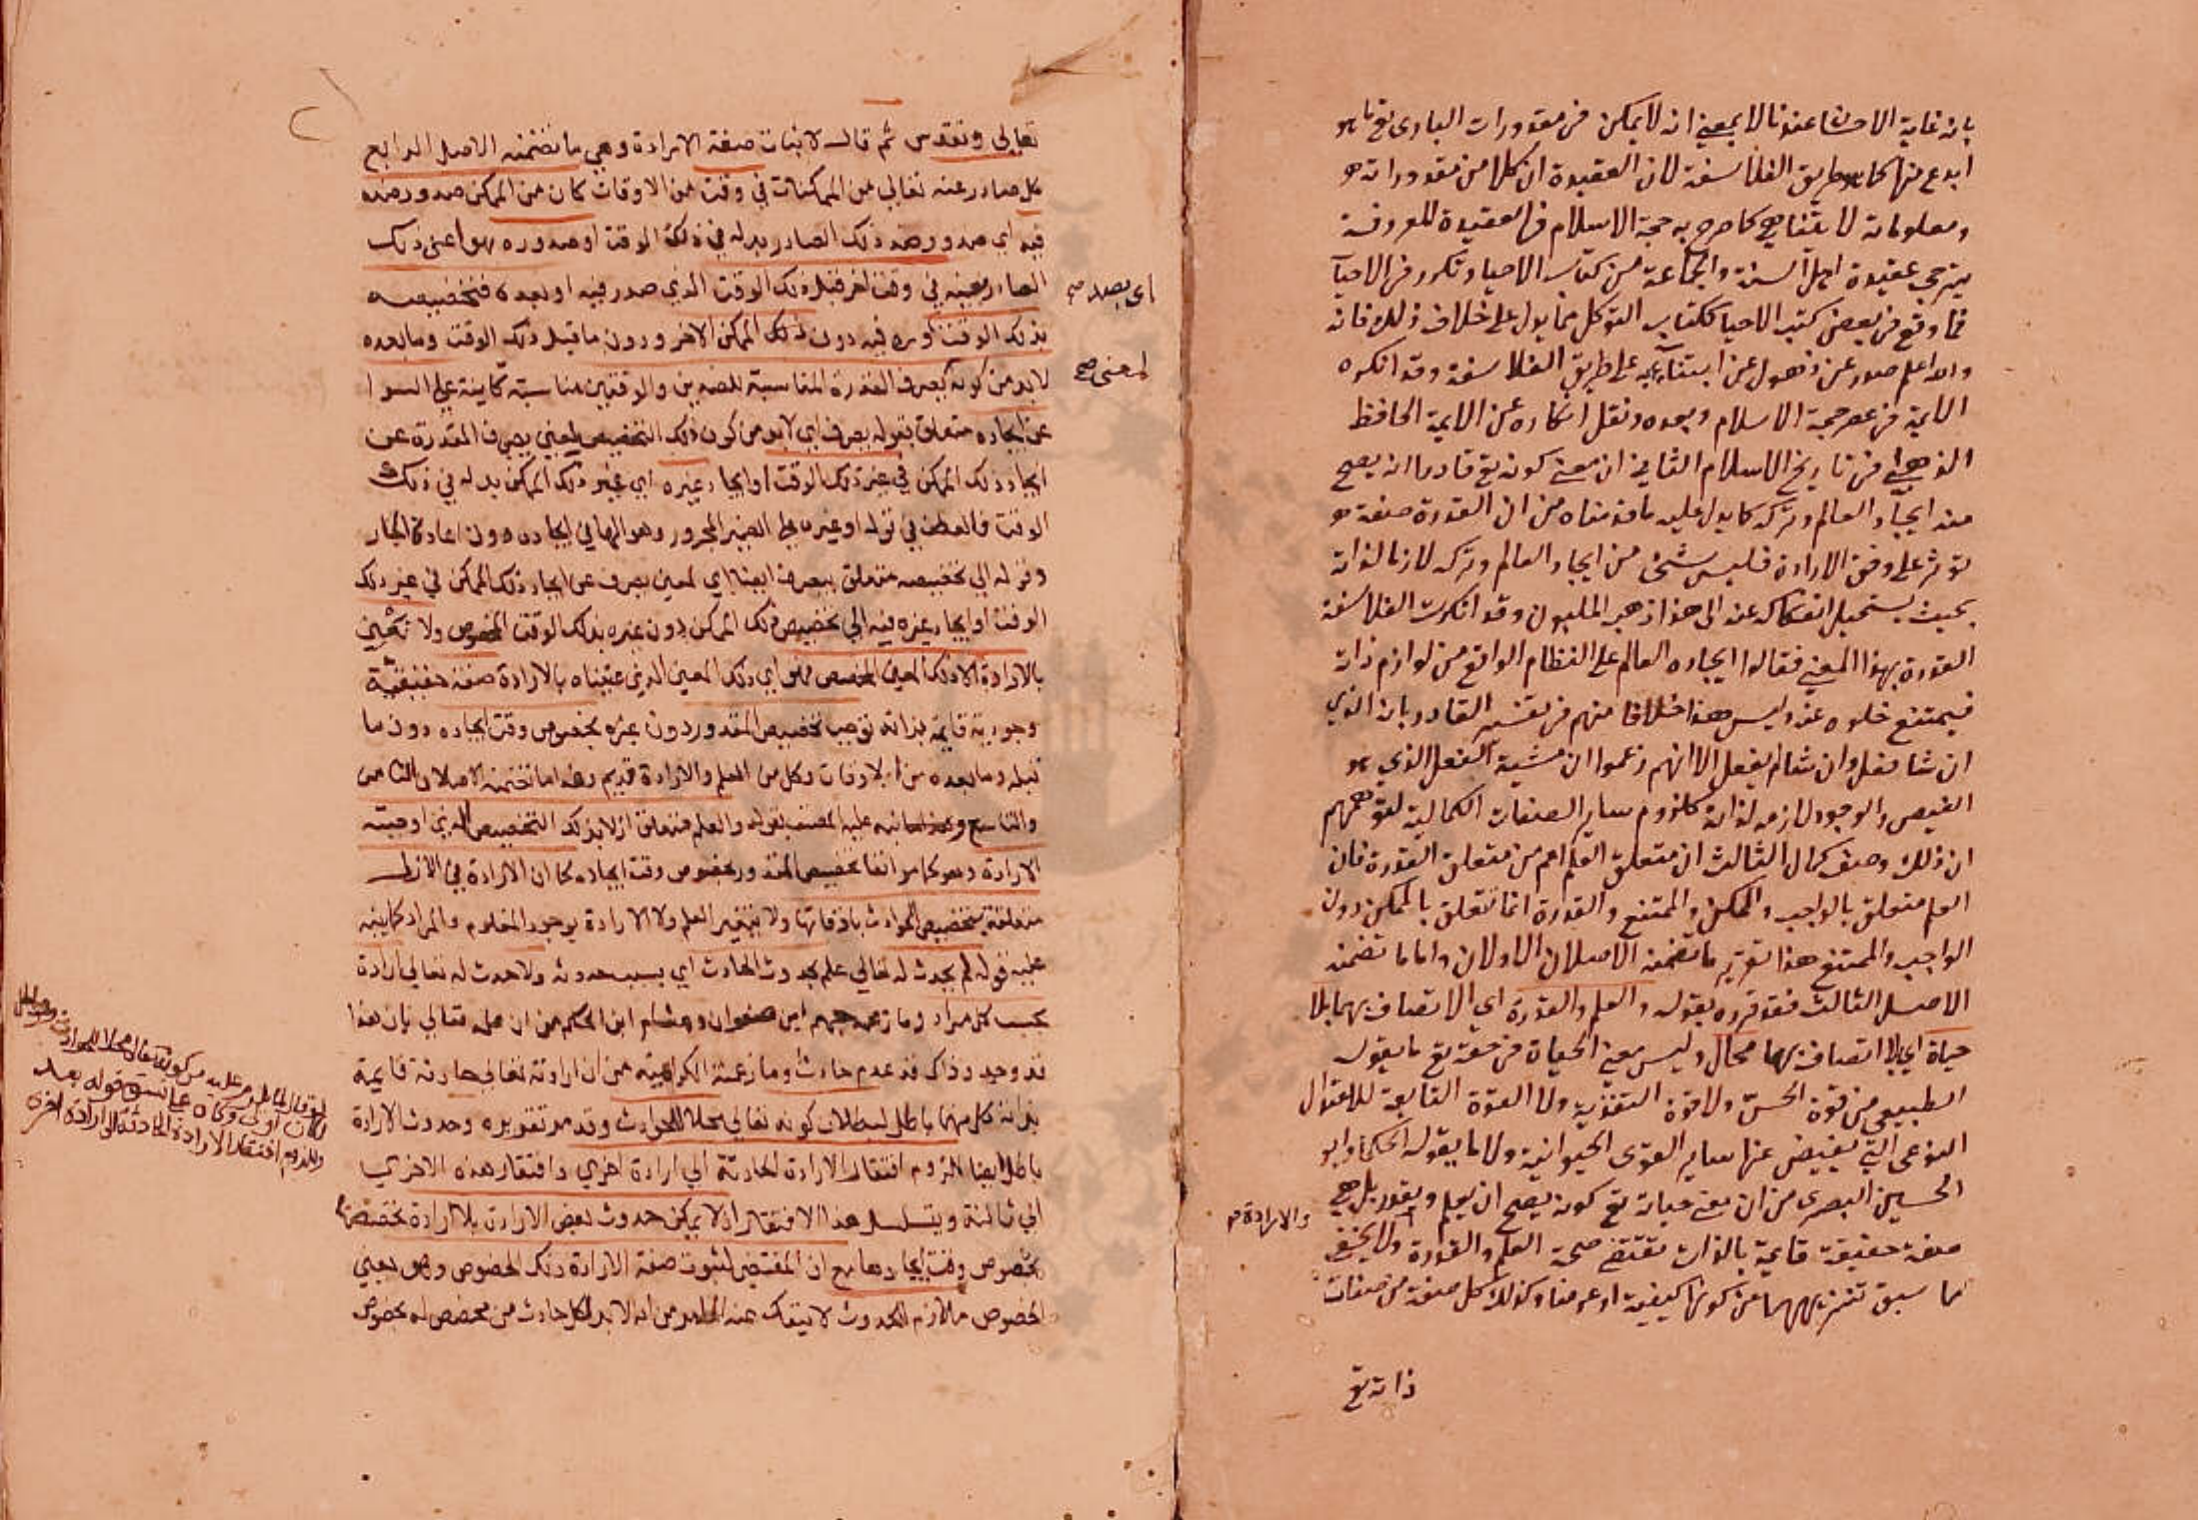 بانه غاية الاحسن عندنا لا بمعني انه لا يمكن في مقدورات الباري تع ما هو
ابدع منها كما هو طريق الفلاسفة لان العقيدة ان كلا من مقدوراته
ومعلوماته لا يتناهي كما صرح به حجة الاسلام في العقيدة المعروفة
بترجمة عقيدة اهل السنة والجماعة من كتاب الاحيا وتكرر في الاحيآ
فما وقع في بعض كتب الاحيا ككتاب التوكل مما يدل علي خلاف ذلك فانه
والله اعلم صدر عن ذهول عن ابتنآئه علي طريق الفلاسفة وقد انكره
الايمة في عصر حجة الاسلام وبعده ونقل انكاره عن الايمة الحافظ
الذهبي في تاريخ الاسلام الثاني ان معني كونه تع قادرا انه يصح
منه ايجآد العالم وتركه كما يدل عليه ما قدمناه من ان القدرة صفة
توثر علي وفق الارادة فليس شئ من ايجاد العالم وتركه لازما لذاته
بحيث يستحيل انفكاكه عنه الى هذا ذهب المليون وقد انكرت الفلاسفة
القدرة بهذا المعني فقالوا ايجاده العالم علي النظام الواقع من لوازم ذاته
فيمتنع خلوه عنه وليس هذا خلافا منهم في تفسير القادر بانه الذي
ان شا فعل وان شا لم يفعل الا انهم زعموا ان مشية الفعل الذي هو
الفيض والوجود لازمه لذاته كلزوم ساير الصفات الكمالية لتوهمهم
ان ذلك وصف كمال الثالث ان متعلق العلم اعم من متعلق القدرة فان
العلم متعلق بالواجب والممكن والممتنع والقدرة انما تتعلق بالممكن دون
الواجب والممتنع هذا تقرير ما تضمنه الاصلان الاولان واما ما تضمنه
الاصل الثالث فقد قرره بقوله والعلم والقدرة اي الاتصاف بهما بلا
حياة اي بلا اتصاف بها محال وليس معني الحياة في حقه تع ما يقوله
الطبيعي من قوة الحس ولا قوة التغذية ولا القوة التابعة للاعتدال
النوعي التي يفيض عنها ساير القوى الحيوانية ولا ما يقوله الحكما وابو
الحسين البصرى من ان معني حياته تع كونه يصح ان يعلم ويقدر بل هي
صفة حقيقة قايمة بالذات تقتضي صحة العلم والقدرة ولا يخفي
والارادة صح
ما سبق تنزيههما عن كونها كيفية او عرضا وكذلك كل صفة من صفات
ذاته تع
تعالي وتقدس ثم قال لاثبات صفة الارادة وهي ما تضمنه الاصل الرابع
كل صادر عنه تعالي من الممكنات في وقت من الاوقات كان من الممكن صدور ضده
فيه اي صدور ضد ذلك الصادر بدله في ذلك الوقت او صدوره هو اعني ذلك
الصادر بعينه في وقت اخر قبل ذلك الوقت الذي صدر فيه او بعده فتخصيصه
اي بصدور صح
بذلك الوقت اوره فيه دون ذلك الممكن الاخر ودون ما قبل ذلك الوقت وما بعده
لابد من كونه يصرف القدرة المناسبة للضدين والوقتين مناسبة كاينة علي السوا
لمعني صح
عن ايجاده متعلق بقوله يصرف اي لابد من كون ذلك التخصيص لمعني يصرف القدرة عن
ايجاد ذلك الممكن في غير ذلك الوقت او ايجاد غيره اي غير ذلك الممكن بدله في ذلك
الوقت فالعطف في قوله او غيره علي الضمير المجرور وهو الها في ايجاده دون اعادة الجار
وقوله الي تخصيصه متعلق بيصرف ايضا اي لمعني يصرف عن ايجاد ذلك الممكن في غير ذلك
الوقت او ايجاد غيره فيه الي تخصيص ذلك الممكن دون غيره بذلك الوقت المخصوص ولا نعني
بالارادة الا ذلك المعني المخصص فهو اي ذلك المعني الذي عنيناه بالارادة صفة حقيقية
وجودية قايمة بذاته توجب تخصيص المقدور دون غيره بخصوص وقت ايجاده دون ما
قبله وما بعده من الاوقات وكل من العلم والارادة قديم وهذا ما تضمنه الاصلان الثامن
والتاسع وهذا ما نبه عليه المصنف بقوله والعلم متعلق ازلا بذلك التخصيص الذي اوجبته
الارادة وهو كما مر انفا تخصيص المقدور بخصوص وقت ايجاده كما ان الارادة في الازل
متعلقة بتخصيص الحوادث باوقاتها ولا يتغير العلم ولا الارادة بوجود المعلوم والمراد كما نبه
عليه قوله لم يحدث له تعالي علم بحدوث الحادث اي بسبب حدوثه ولا حدث له تعالي ارادة
بحسب كل مراد وما زعمه جهم ابن صفوان وهشام ابن الحكم من ان علمه تعالي بان هذا
قد وجد وذاك قد عدم حادث وما زعمته الكرامية من ان ارادته تعالي حادثة قايمة
بذاته كل منهما باطل لبطلان كونه تعالي محلا للحوادث وقد مر تقريره وحدوث الارادة
باطل ايضا للزوم افتقار الارادة الحادثة الي ارادة اخري وافتقار هذه الاخري
الي ثالثة ويتسلسل هذا الافتقار اذ لا يمكن حدوث بعض الارادة بلا ارادة تخصصها
بخصوص وقت ايجادها مع ان المقتضي لثبوت صفة الارادة ذلك الخصوص وهو يعني
الخصوص ملازم للحدوث لا ينفك عنه الحدوث من انه لابد لكل حادث من مخصص له بخصوص
لكان اولى وكان على نسق قوله بعد
وللزوم افتقار الارادة الحادثة الى ارادة اخرى